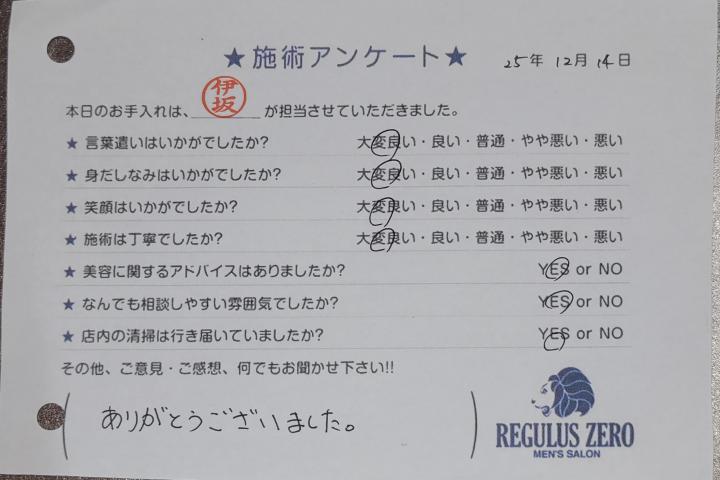 ★施術アンケート★ 25年 12月 14日
本日のお手入れは、伊坂が担当させていただきました。
★ 言葉遣いはいかがでしたか? 大変良い・良い・普通・やや悪い・悪い
★ 身だしなみはいかがでしたか? 大変良い・良い・普通・やや悪い・悪い
★ 笑顔はいかがでしたか? 大変良い・良い・普通・やや悪い・悪い
★ 施術は丁寧でしたか? 大変良い・良い・普通・やや悪い・悪い
★ 美容に関するアドバイスはありましたか? YES or NO
★ なんでも相談しやすい雰囲気でしたか? YES or NO
★ 店内の清掃は行き届いていましたか? YES or NO
その他、ご意見・ご感想、何でもお聞かせ下さい!!
ありがとうございました。
REGULUS ZERO
MEN'S SALON